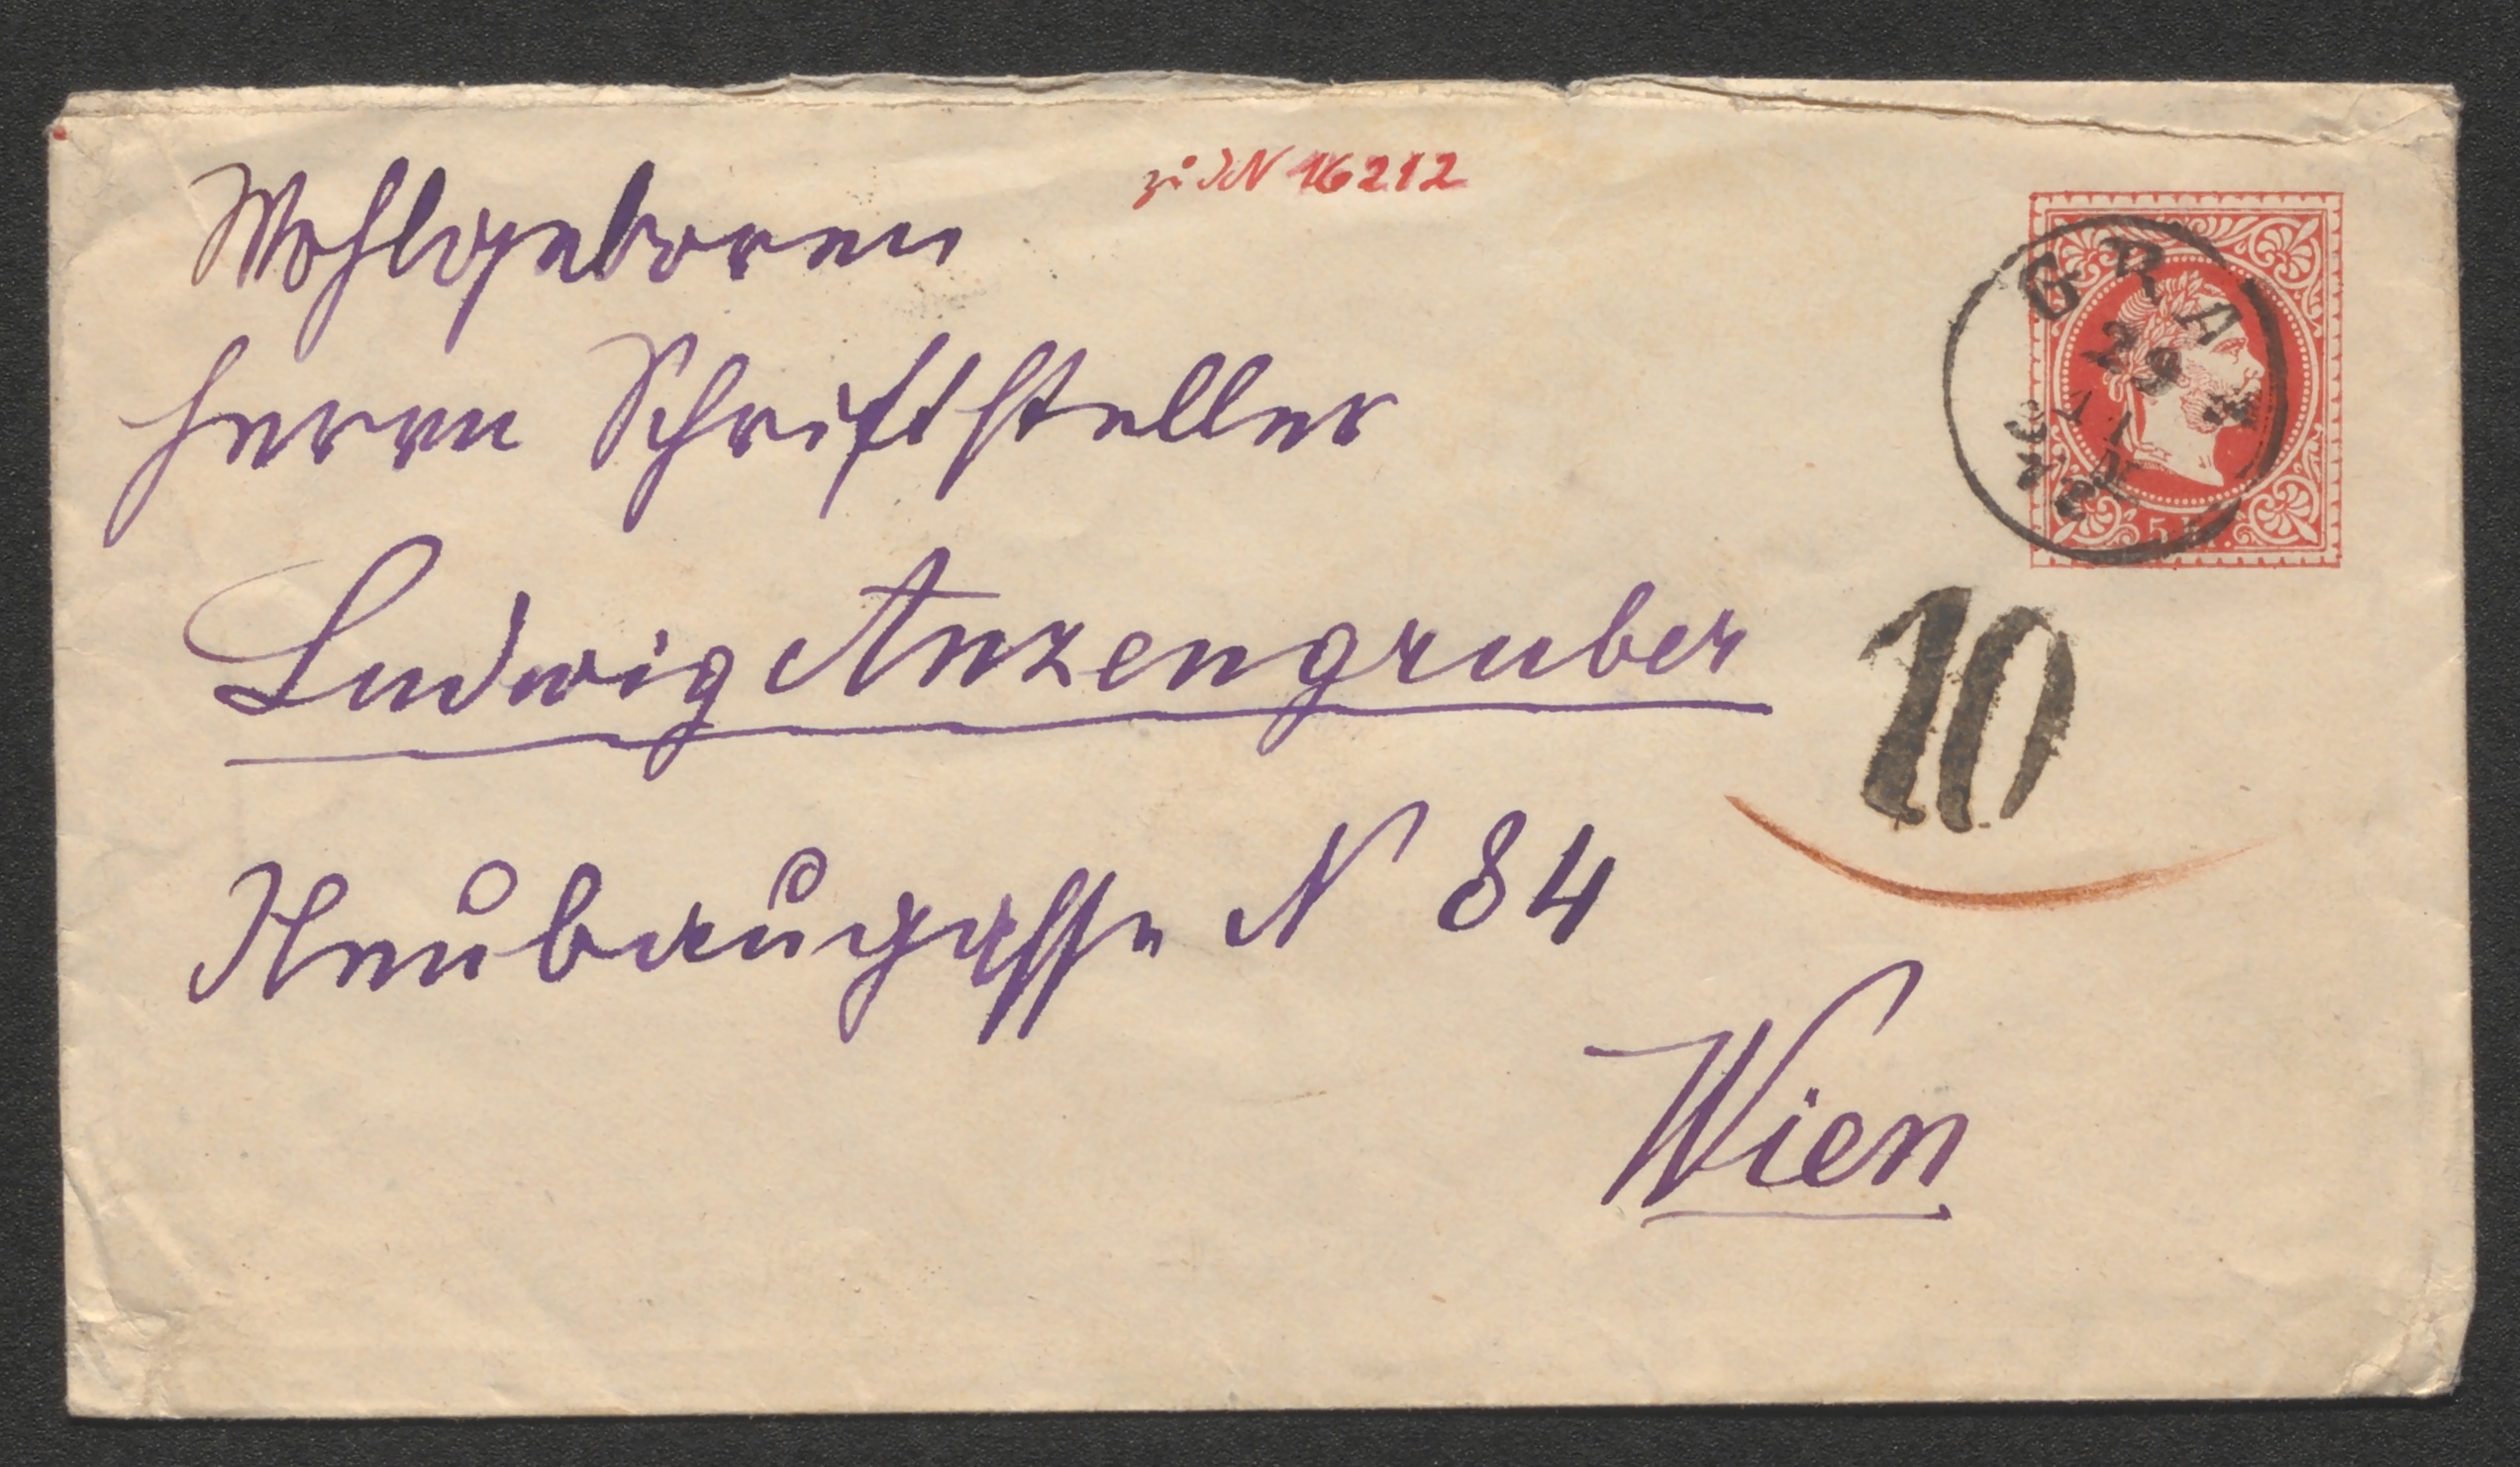 zu IN 16212
Wohlgeboren
Herrn Schriftsteller
Ludwig Anzengruber
Neubaugasse N 84
Wien
GRAZ
29
1
72
5 kr.
10